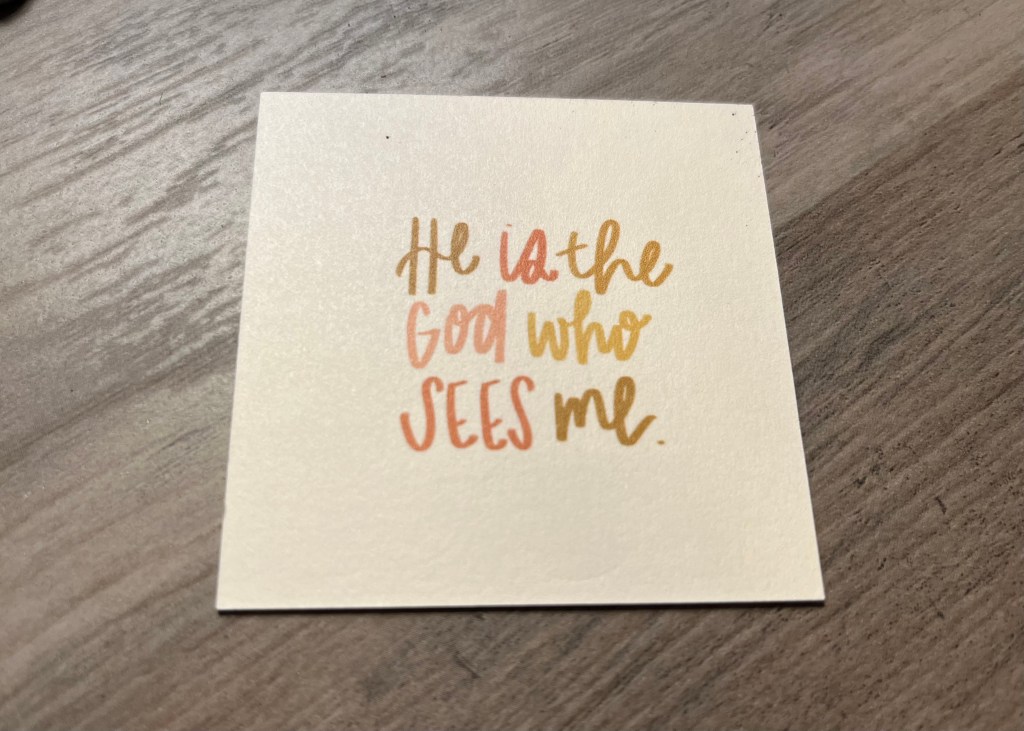 He is the
God who
SEES me.